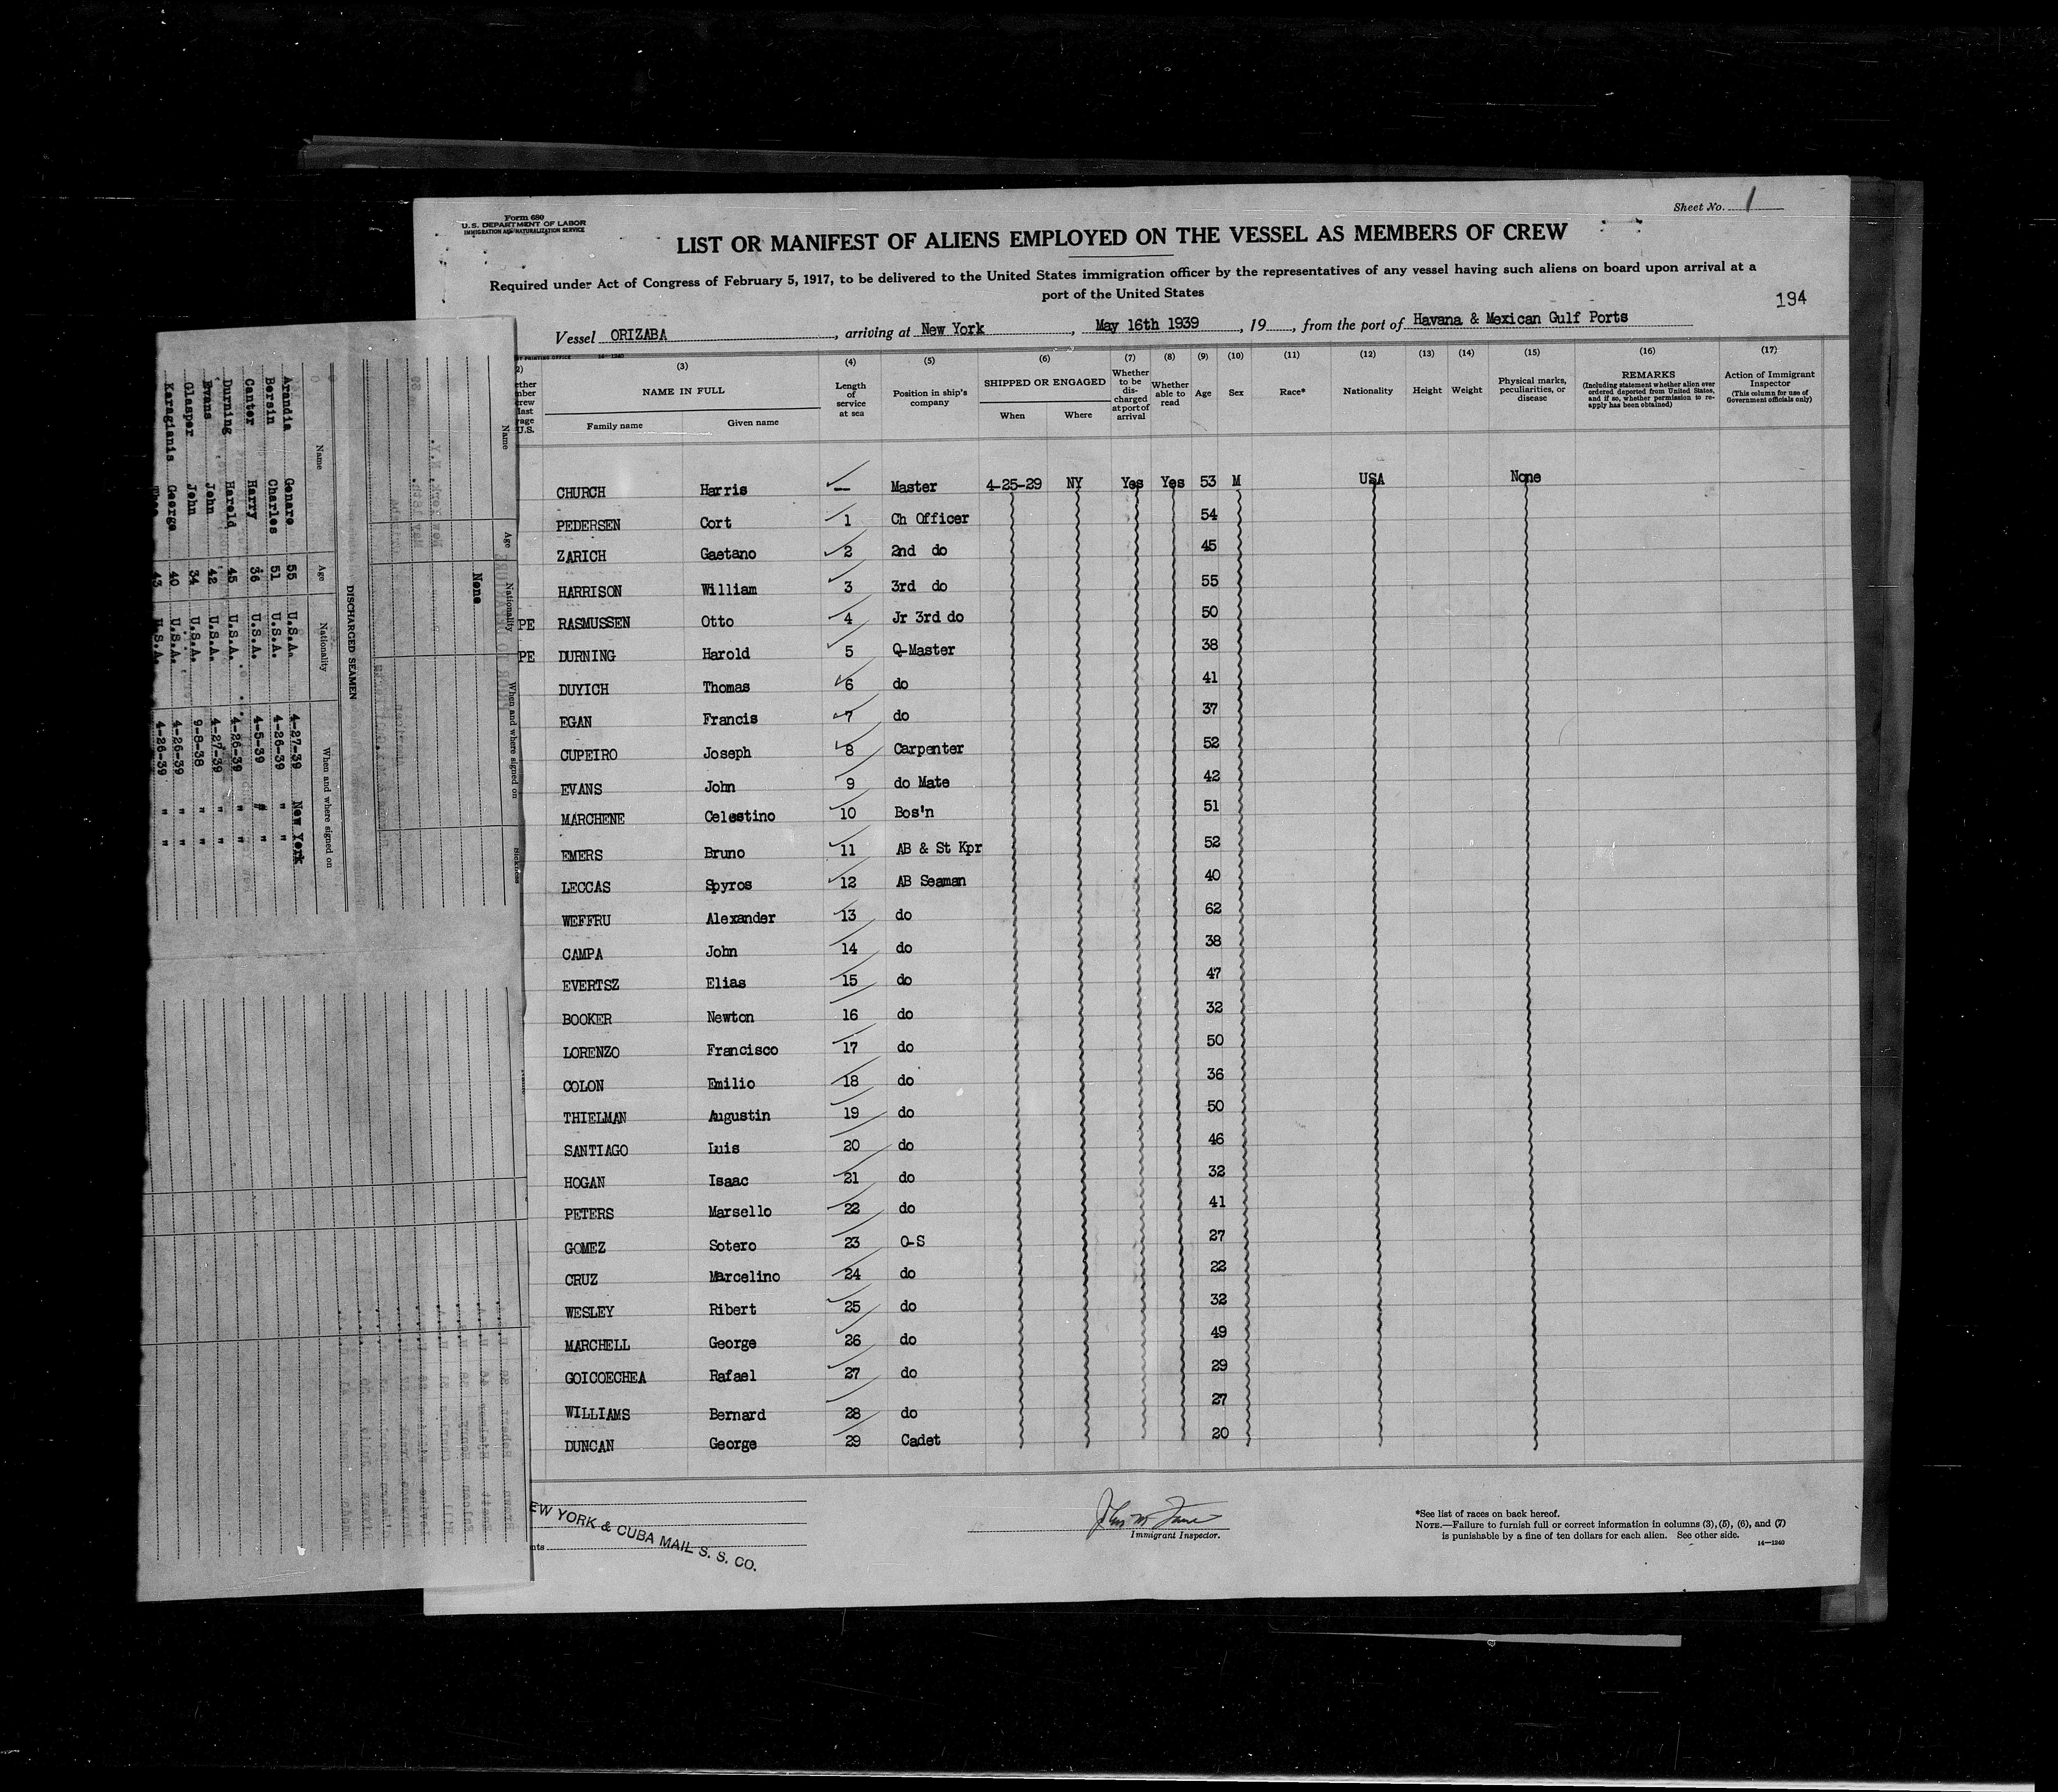 Form 680
U.S. DEPARTMENT OF LABOR
IMMIGRATION AND NATURALIZATION SERVICE
Sheet No. 1
LIST OR MANIFEST OF ALIENS EMPLOYED ON THE VESSEL AS MEMBERS OF CREW
Required under Act of Congress of February 5, 1917, to be delivered to the United States immigration officer by the representatives of any vessel having such aliens on board upon arrival at a
port of the United States
194
Vessel ORIZABA, arriving at New York, May 16th 1939, 19, from the port of Havana & Mexican Gulf Ports
(3) (4) (5) (6) (7) (8) (9) (10) (11) (12) (13) (14) (15) (16) (17)
NAME IN FULL
Family name Given name
Length of service at sea
Position in ship's company
SHIPPED OR ENGAGED
When Where
Whether to be discharged at port of arrival
Whether able to read
Age
Sex
Race*
Nationality
Height
Weight
Physical marks, peculiarities, or disease
REMARKS
(Including statement whether alien ever ordered deported from United States, and if so, whether permission to reapply has been obtained)
Action of Immigrant Inspector
(This column for use of Government officials only)
CHURCH Harris — Master 4-25-29 NY Yes Yes 53 M USA None
PEDERSEN Cort 1 Ch Officer 54
ZARICH Gaetano 2 2nd do 45
HARRISON William 3 3rd do 55
PE RASMUSSEN Otto 4 Jr 3rd do 50
PE DURNING Harold 5 Q-Master 38
DUYICH Thomas 6 do 41
EGAN Francis 7 do 37
CUPEIRO Joseph 8 Carpenter 52
EVANS John 9 do Mate 42
MARCHENE Celestino 10 Bos'n 51
EMERS Bruno 11 AB & St Kpr 52
LECCAS Spyros 12 AB Seaman 40
WEFFRU Alexander 13 do 62
CAMPA John 14 do 38
EVERTSZ Elias 15 do 47
BOOKER Newton 16 do 32
LORENZO Francisco 17 do 50
COLON Emilio 18 do 36
THIELMAN Augustin 19 do 50
SANTIAGO Luis 20 do 46
HOGAN Isaac 21 do 32
PETERS Marsello 22 do 41
GOMEZ Sotero 23 O-S 27
CRUZ Marcelino 24 do 22
WESLEY Ribert 25 do 32
MARCHELL George 26 do 49
GOICOECHEA Rafael 27 do 29
WILLIAMS Bernard 28 do 27
DUNCAN George 29 Cadet 20
EW YORK & CUBA MAIL S. S. CO.
Immigrant Inspector.
*See list of races on back hereof.
NOTE.—Failure to furnish full or correct information in columns (3), (5), (6), and (7)
is punishable by a fine of ten dollars for each alien. See other side.
14—1240
Name Age Nationality When and where signed on Sickness
None
DISCHARGED SEAMEN
Name Age Nationality When and where signed on
Arandia Genaro 55 U.S.A. 4-27-39 New York
Bersin Charles 51 U.S.A. 4-26-39 " "
Canter Harry 36 U.S.A. 4-5-39 " "
Durning Harold 45 U.S.A. 4-26-39 " "
Evans John 42 U.S.A. 4-27-39 " "
Glasper John 34 U.S.A. 9-8-38 " "
Karagianis George 40 U.S.A. 4-26-39 " "
43 U.S.A. 4-26-39 " "